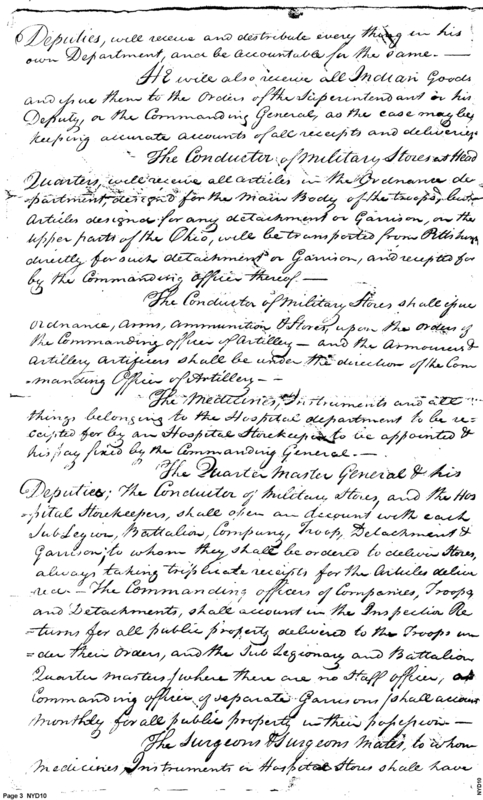 Deputies, will receive and destribute every thing in his
own Department, and be accountable for the same. —
HE will also receive all Indian Goods
and issue them to the Orders of the Superintendant or his
Deputy, or the Commanding General, as the case may be,
keeping accurate accounts of all receipts and deliveries
The Conductor of Military Stores at Head
Quarters, will receive all articles in the Ordnance de-
partment, design'd for the Main Body of the troops, but
Articles designed for any detachment or Garrison, on the
upper parts of the Ohio, will be transported from Pittsburg
directly for such detachment or Garrison, and recepted for
by the Commanding Officer thereof. —
The Conductor of Military Stores shall issue
ordnance, arms, ammunition & Stores, upon the orders of
the Commanding officer of Artillery — and the Armourers &
Artillery artificers shall be under the direction of the Com
-manding Officer of Artillery — -
The Medicines, Instruments and all
things belonging to the Hospital department to be re-
ceipted for by an Hospital Storekeeper to be appointed &
his pay fixed by the Commanding General. —
The Quarter Master General & his
Deputies; The Conductor of Military Stores, and the Hos
-pital Storekeepers, shall open an account with each
Sub Legion, Battalion, Company, Troop, Detachment &
Garrison, to whom they shall be ordered to deliver Stores,
always taking triplicate receipts for the Articles deliver
red — The Commanding officers of Companies, Troops
and Detachments, shall account in the Inspection Re
-turns for all public property delivered to the Troops un
-der their Orders, and the Sub Legionary and Battalion
Quarter masters (where there are no Staff officer, a
Commanding officer of separate Garrisons) shall account
monthly for all public property in their possession —
The Surgeons & Surgeons Mates, to whom
medicines, Instruments or Hospital Stores shall have
Page 3 NYD10
NYD10